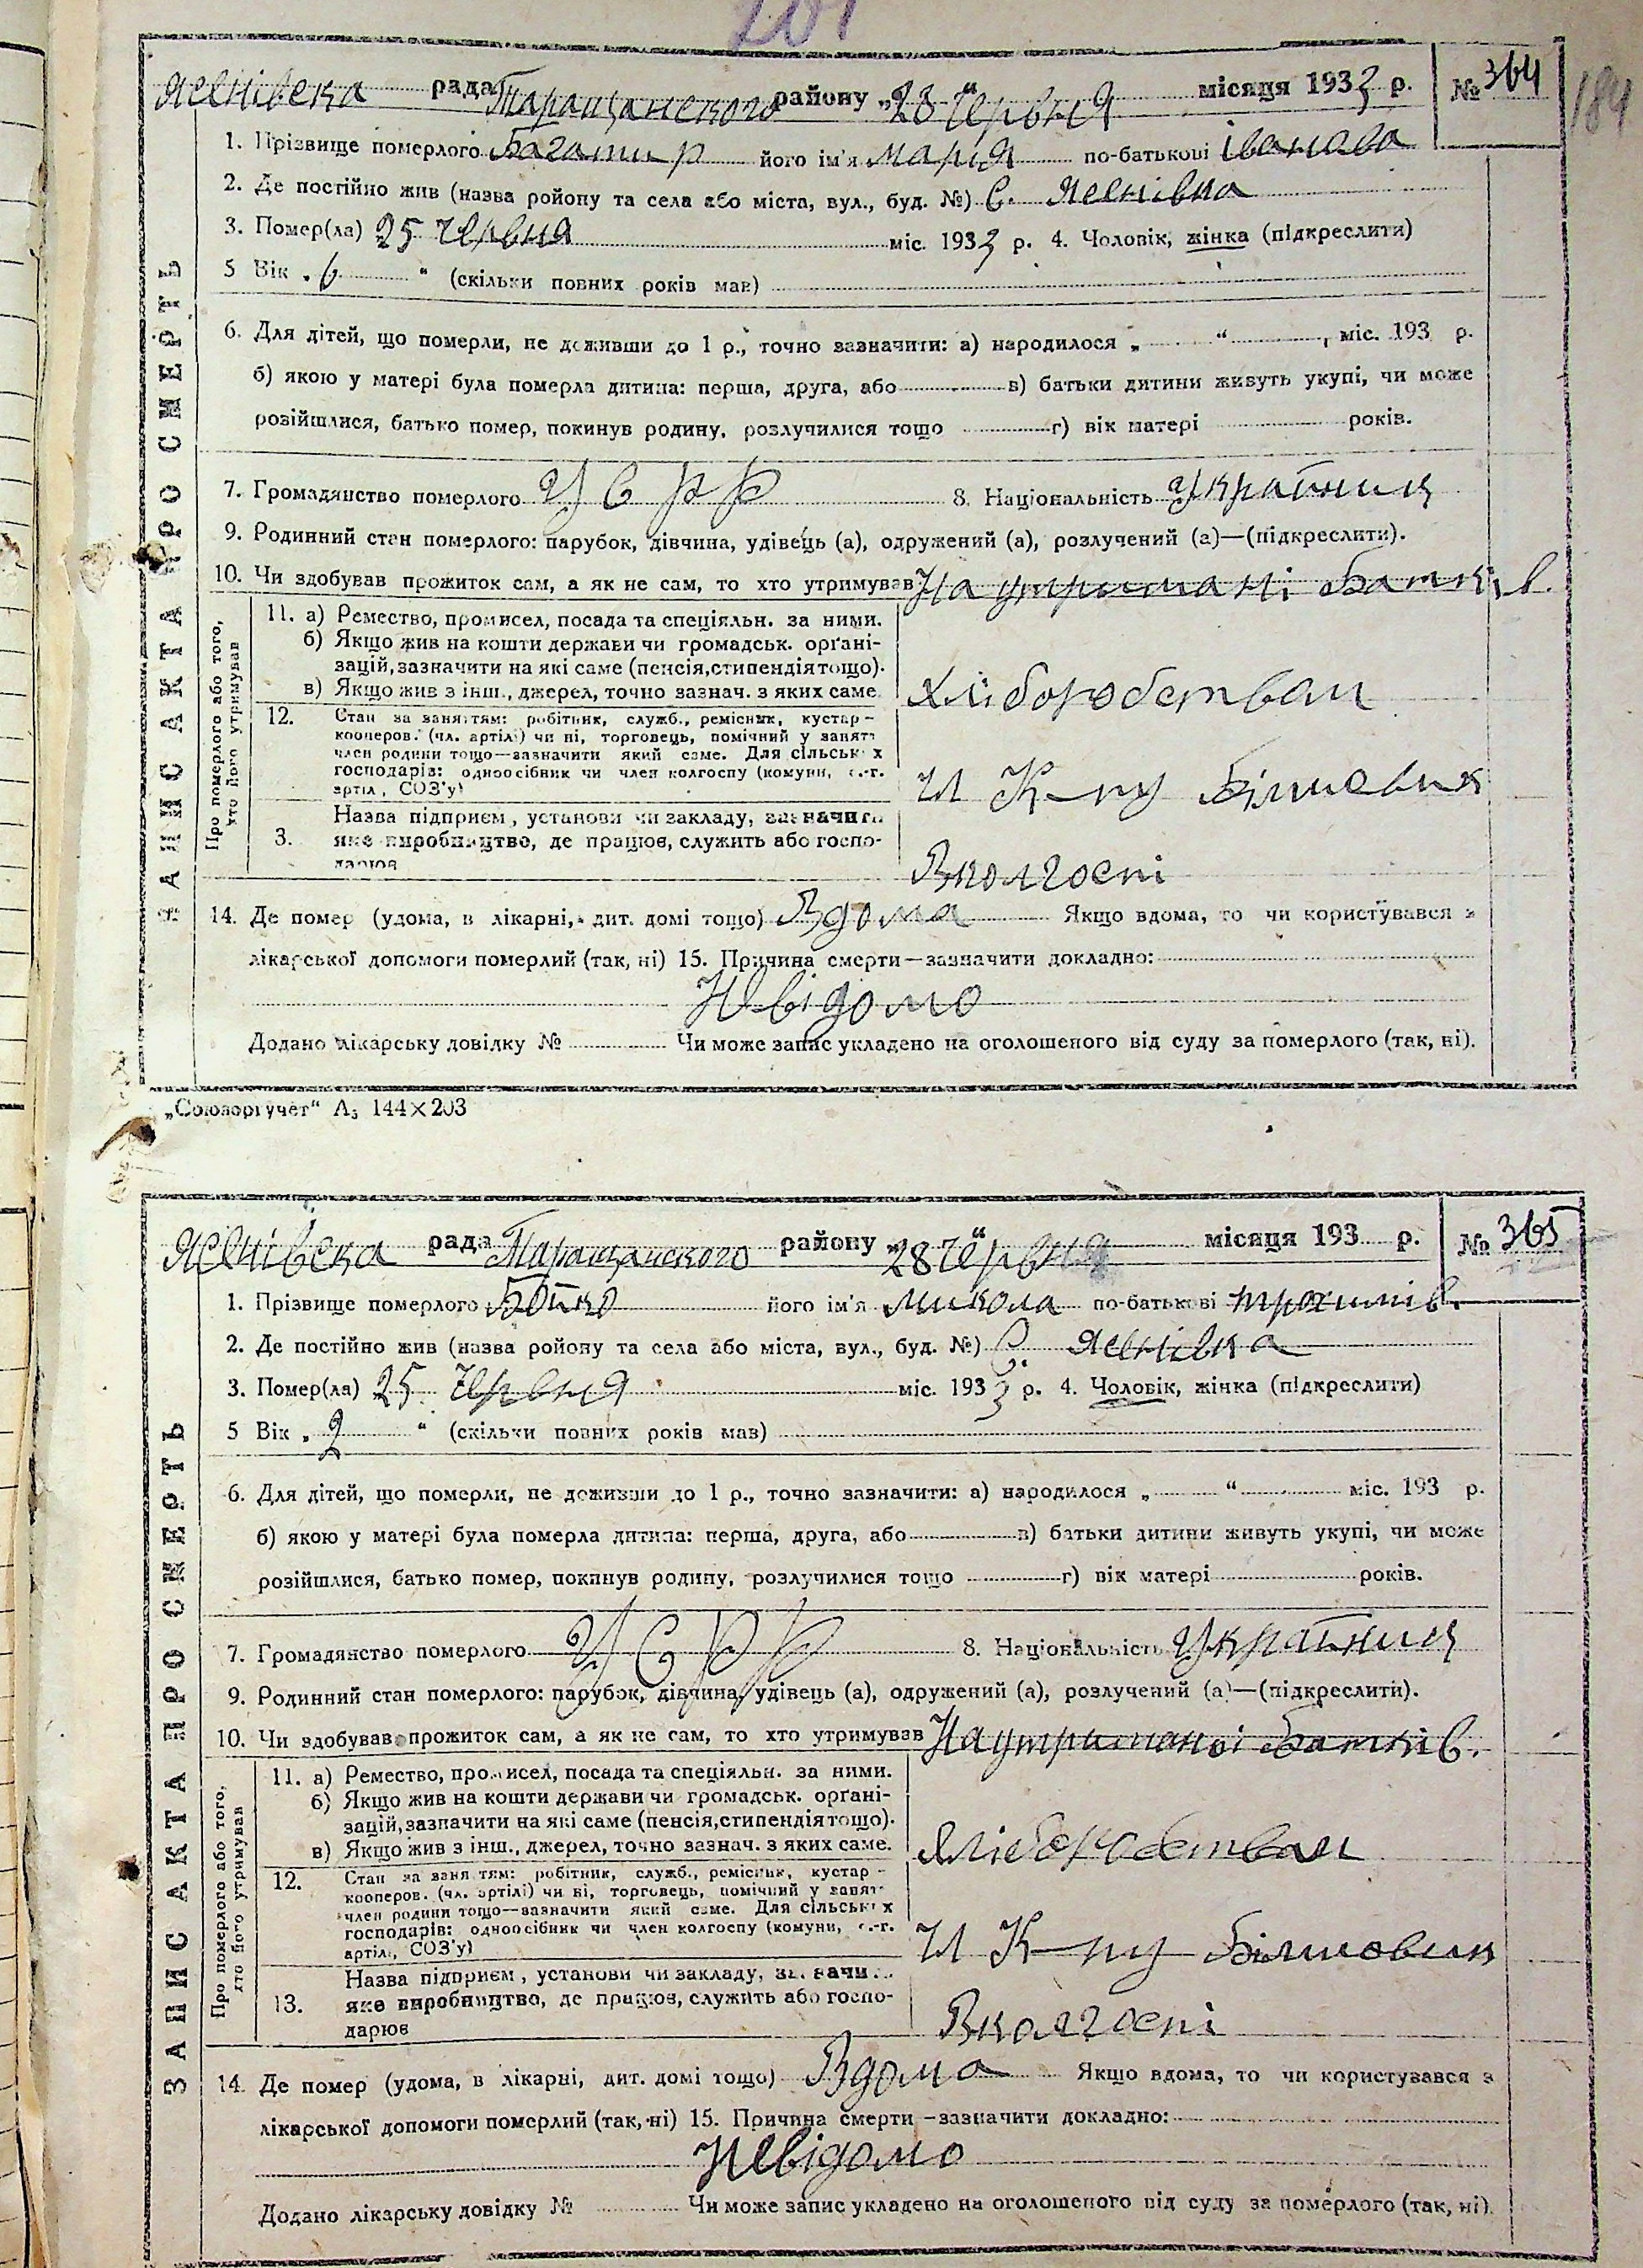 201
Яснівська рада Таращанского району „28" Червня місяця 1933 р. № 364
184
1. Прізвище померлого Багатир його ім'я Марія по-батькові Іванова
2. Де постійно жив (назва ройону та села або міста, вул., буд. №) С. Яснівка
3. Помер(ла) 25 Червня міс. 1933 р. 4. Чоловік, жінка (підкреслити)
5 Вік „6" (скільки повних років мав)
6. Для дітей, що померли, не доживши до 1 р., точно зазначити: а) народилося „ " міс. 193 р.
б) якою у матері була померла дитина: перша, друга, або в) батьки дитини живуть укупі, чи може
розійшлися, батько помер, покинув родину, розлучилися тощо г) вік матері років.
7. Громадянство померлого УСРР 8. Національність Українця
9. Родинний стан померлого: парубок, дівчина, удівець (а), одружений (а), розлучений (а)—(підкреслити).
10. Чи здобував прожиток сам, а як не сам, то хто утримував На утримані Батків.
ЗАПИС АКТА ПРО СМЕРТЬ
Про померлого або того, хто його утримував
11. а) Ремество, промисел, посада та спеціяльн. за ними.
б) Якщо жив на кошти держави чи громадськ. орґані-
зацій, зазначити на які саме (пенсія, стипендія тощо).
в) Якщо жив з інш., джерел, точно зазнач. з яких саме
Хліборобством
12. Стан за заняттям: робітник, служб., ремісник, кустар-
кооперов. (чл. артілі) чи ні, торговець, помічний у занятт
член родини тощо—зазначити який саме. Для сільськ х
господарів: одноосібник чи член колгоспу (комуни, с.-г.
артіл, СОЗ'у)
Чл К-пу Більшовик
Назва підприєм, установи чи закладу, зазначити
3. яке виробництво, де працює, служить або госпо-
дарює
В колгоспі
14. Де помер (удома, в лікарні, дит. домі тощо) Вдома Якщо вдома, то чи користувався з
лікарської допомоги померлий (так, ні) 15. Причина смерти—зазначити докладно:
Невідомо
Додано лікарську довідку № Чи може запис укладено на оголошеного від суду за померлого (так, ні).
„Союзоргучет" А₅ 144×203
Яснівська рада Таращанского району „28" Червня місяця 193 р. № 365
1. Прізвище померлого Бойко його ім'я Микола по-батькові Трохимів.
2. Де постійно жив (назва ройону та села або міста, вул., буд. №) С. Яснівка
3. Помер(ла) 25 Червня міс. 1933 р. 4. Чоловік, жінка (підкреслити)
5 Вік „2" (скільки повних років мав)
6. Для дітей, що померли, не доживши до 1 р., точно зазначити: а) народилося „ " міс. 193 р.
б) якою у матері була померла дитина: перша, друга, або в) батьки дитини живуть укупі, чи може
розійшлися, батько помер, покинув родину, розлучилися тощо г) вік матері років.
7. Громадянство померлого УСРР 8. Національність Українця
9. Родинний стан померлого: парубок, дівчина, удівець (а), одружений (а), розлучений (а)—(підкреслити).
10. Чи здобував прожиток сам, а як не сам, то хто утримував На утримані Батків.
ЗАПИС АКТА ПРО СМЕРТЬ
Про померлого або того, хто його утримував
11. а) Ремество, промисел, посада та спеціяльн. за ними.
б) Якщо жив на кошти держави чи громадськ. орґані-
зацій, зазначити на які саме (пенсія, стипендія тощо).
в) Якщо жив з інш., джерел, точно зазнач. з яких саме.
Хліборобством
12. Стан за заняттям: робітник, служб., ремісник, кустар-
кооперов. (чл. артілі) чи ні, торговець, помічний у занят
член родини тощо—зазначити який саме. Для сільськ х
господарів: одноосібник чи член колгоспу (комуни, с.-г.
артіл., СОЗ'у)
Чл К-пу Більшовик
Назва підприєм, установи чи закладу, зазначи
13. яке виробництво, де працює, служить або госпо-
дарює
В колгоспі
14. Де помер (удома, в лікарні, дит. домі тощо) Вдома Якщо вдома, то чи користувався з
лікарської допомоги померлий (так, ні) 15. Причина смерти—зазначити докладно:
Невідомо
Додано лікарську довідку № Чи може запис укладено на оголошеного від суду за померлого (так, ні).